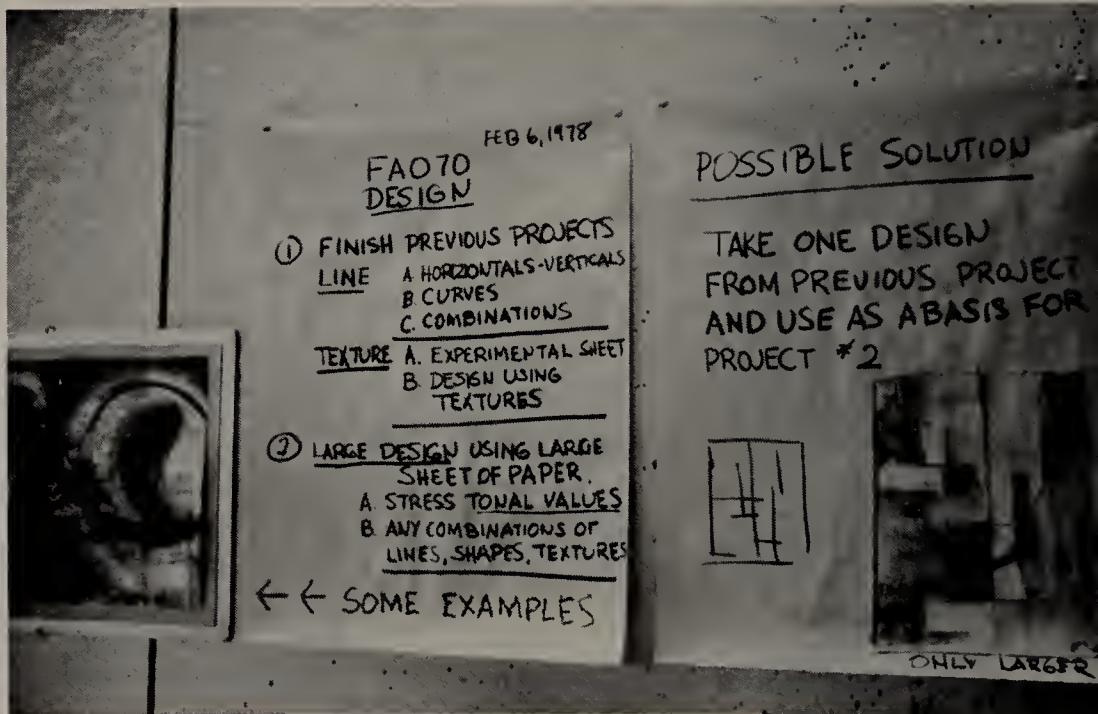 FEB 6, 1978
FA070
DESIGN
① FINISH PREVIOUS PROJECTS
LINE A HORIZONTALS-VERTICALS
B. CURVES
C. COMBINATIONS
TEXTURE A. EXPERIMENTAL SHEET
B. DESIGN USING
TEXTURES
② LARGE DESIGN USING LARGE
SHEET OF PAPER.
A. STRESS TONAL VALUES
B. ANY COMBINATIONS OF
LINES, SHAPES, TEXTURES
←← SOME EXAMPLES
POSSIBLE SOLUTION
TAKE ONE DESIGN
FROM PREVIOUS PROJECT
AND USE AS A BASIS FOR
PROJECT #2
ONLY LARGER